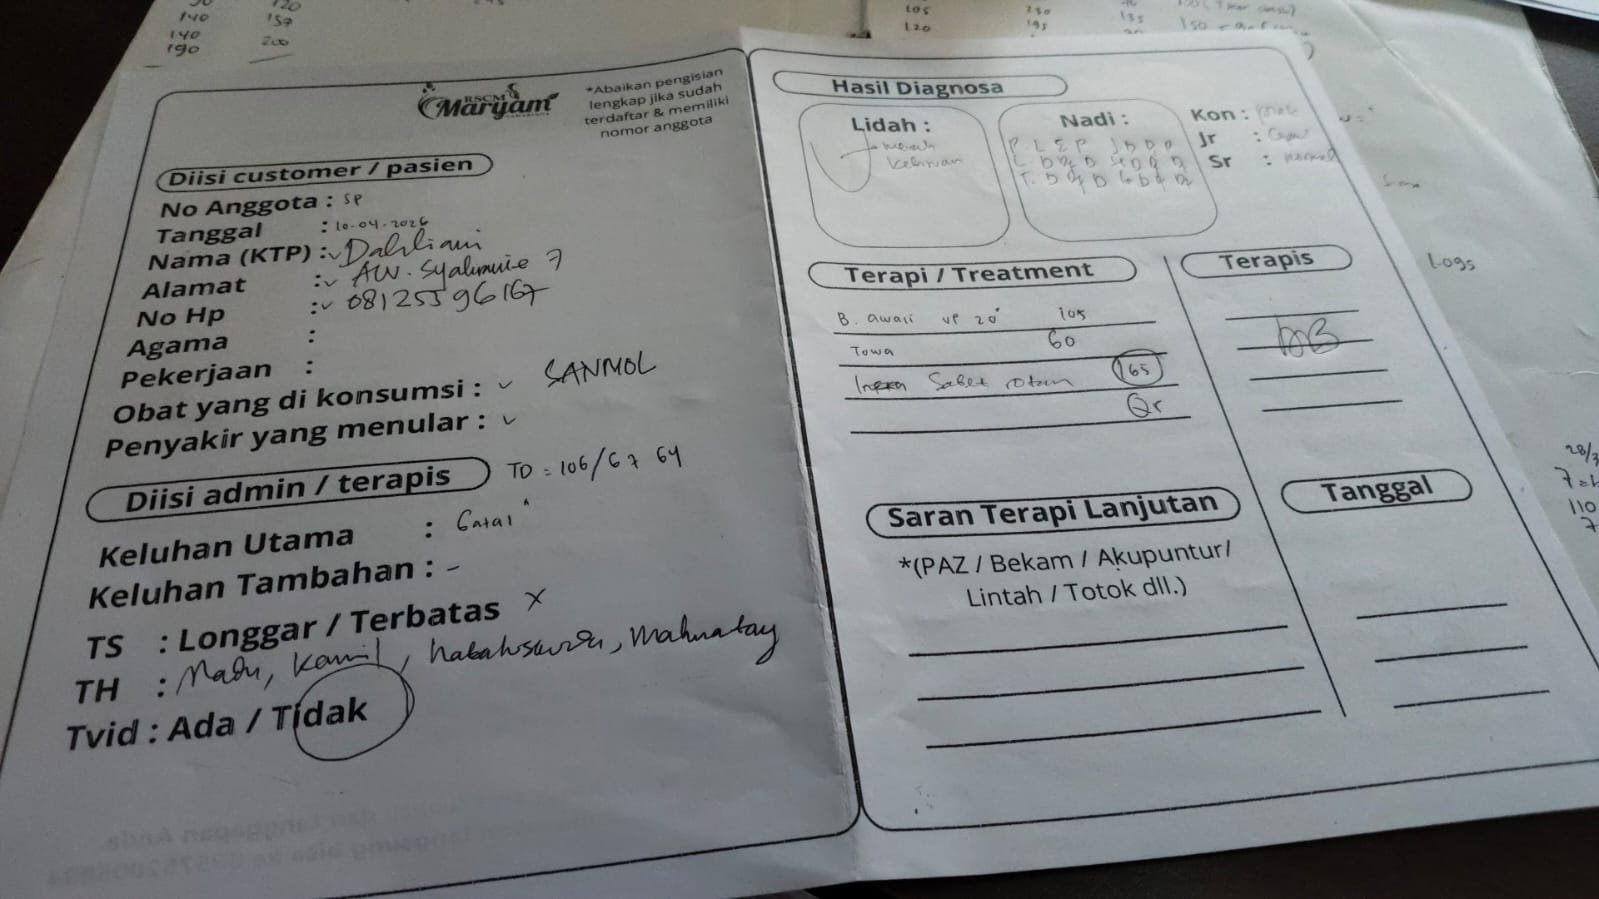 120
140 157
140
190 200
105 230 135
120 195
RSCM
Maryam
SAMARINDA
*Abaikan pengisian
lengkap jika sudah
terdaftar & memiliki
nomor anggota
Diisi customer / pasien
No Anggota : SP
Tanggal : 10-04-2026
Nama (KTP) : Dahliani
Alamat : AW. Syahranie 7
No Hp : 08125596167
Agama :
Pekerjaan :
Obat yang di konsumsi : SANMOL
Penyakir yang menular :
Diisi admin / terapis TD = 106/67 64
Keluhan Utama : Gatal"
Keluhan Tambahan : -
TS : Longgar / Terbatas X
TH : Madu, Kamil, habahsauda, Mahnatay
Tvid : Ada / Tidak
Hasil Diagnosa
Lidah :
merah
Nadi :
Kon :
Jr :
Sr : normal
Terapi / Treatment
B. awali up 20" 105
Towa 60
Sabet rotan 165
Qr
Terapis
Saran Terapi Lanjutan
*(PAZ / Bekam / Akupuntur/
Lintah / Totok dll.)
Tanggal
Logs
28/3
110
7